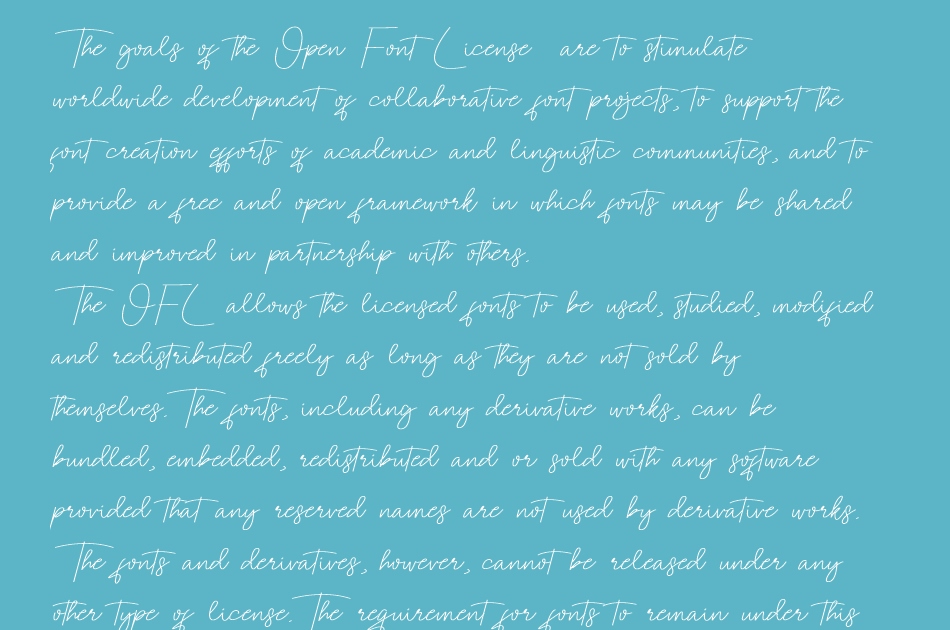 The goals of the Open Font License are to stimulate
worldwide development of collaborative font projects, to support the
font creation efforts of academic and linguistic communities, and to
provide a free and open framework in which fonts may be shared
and improved in partnership with others.
The OFL allows the licensed fonts to be used, studied, modified
and redistributed freely as long as they are not sold by
themselves. The fonts, including any derivative works, can be
bundled, embedded, redistributed and or sold with any software
provided that any reserved names are not used by derivative works.
The fonts and derivatives, however, cannot be released under any
other type of license. The requirement for fonts to remain under this